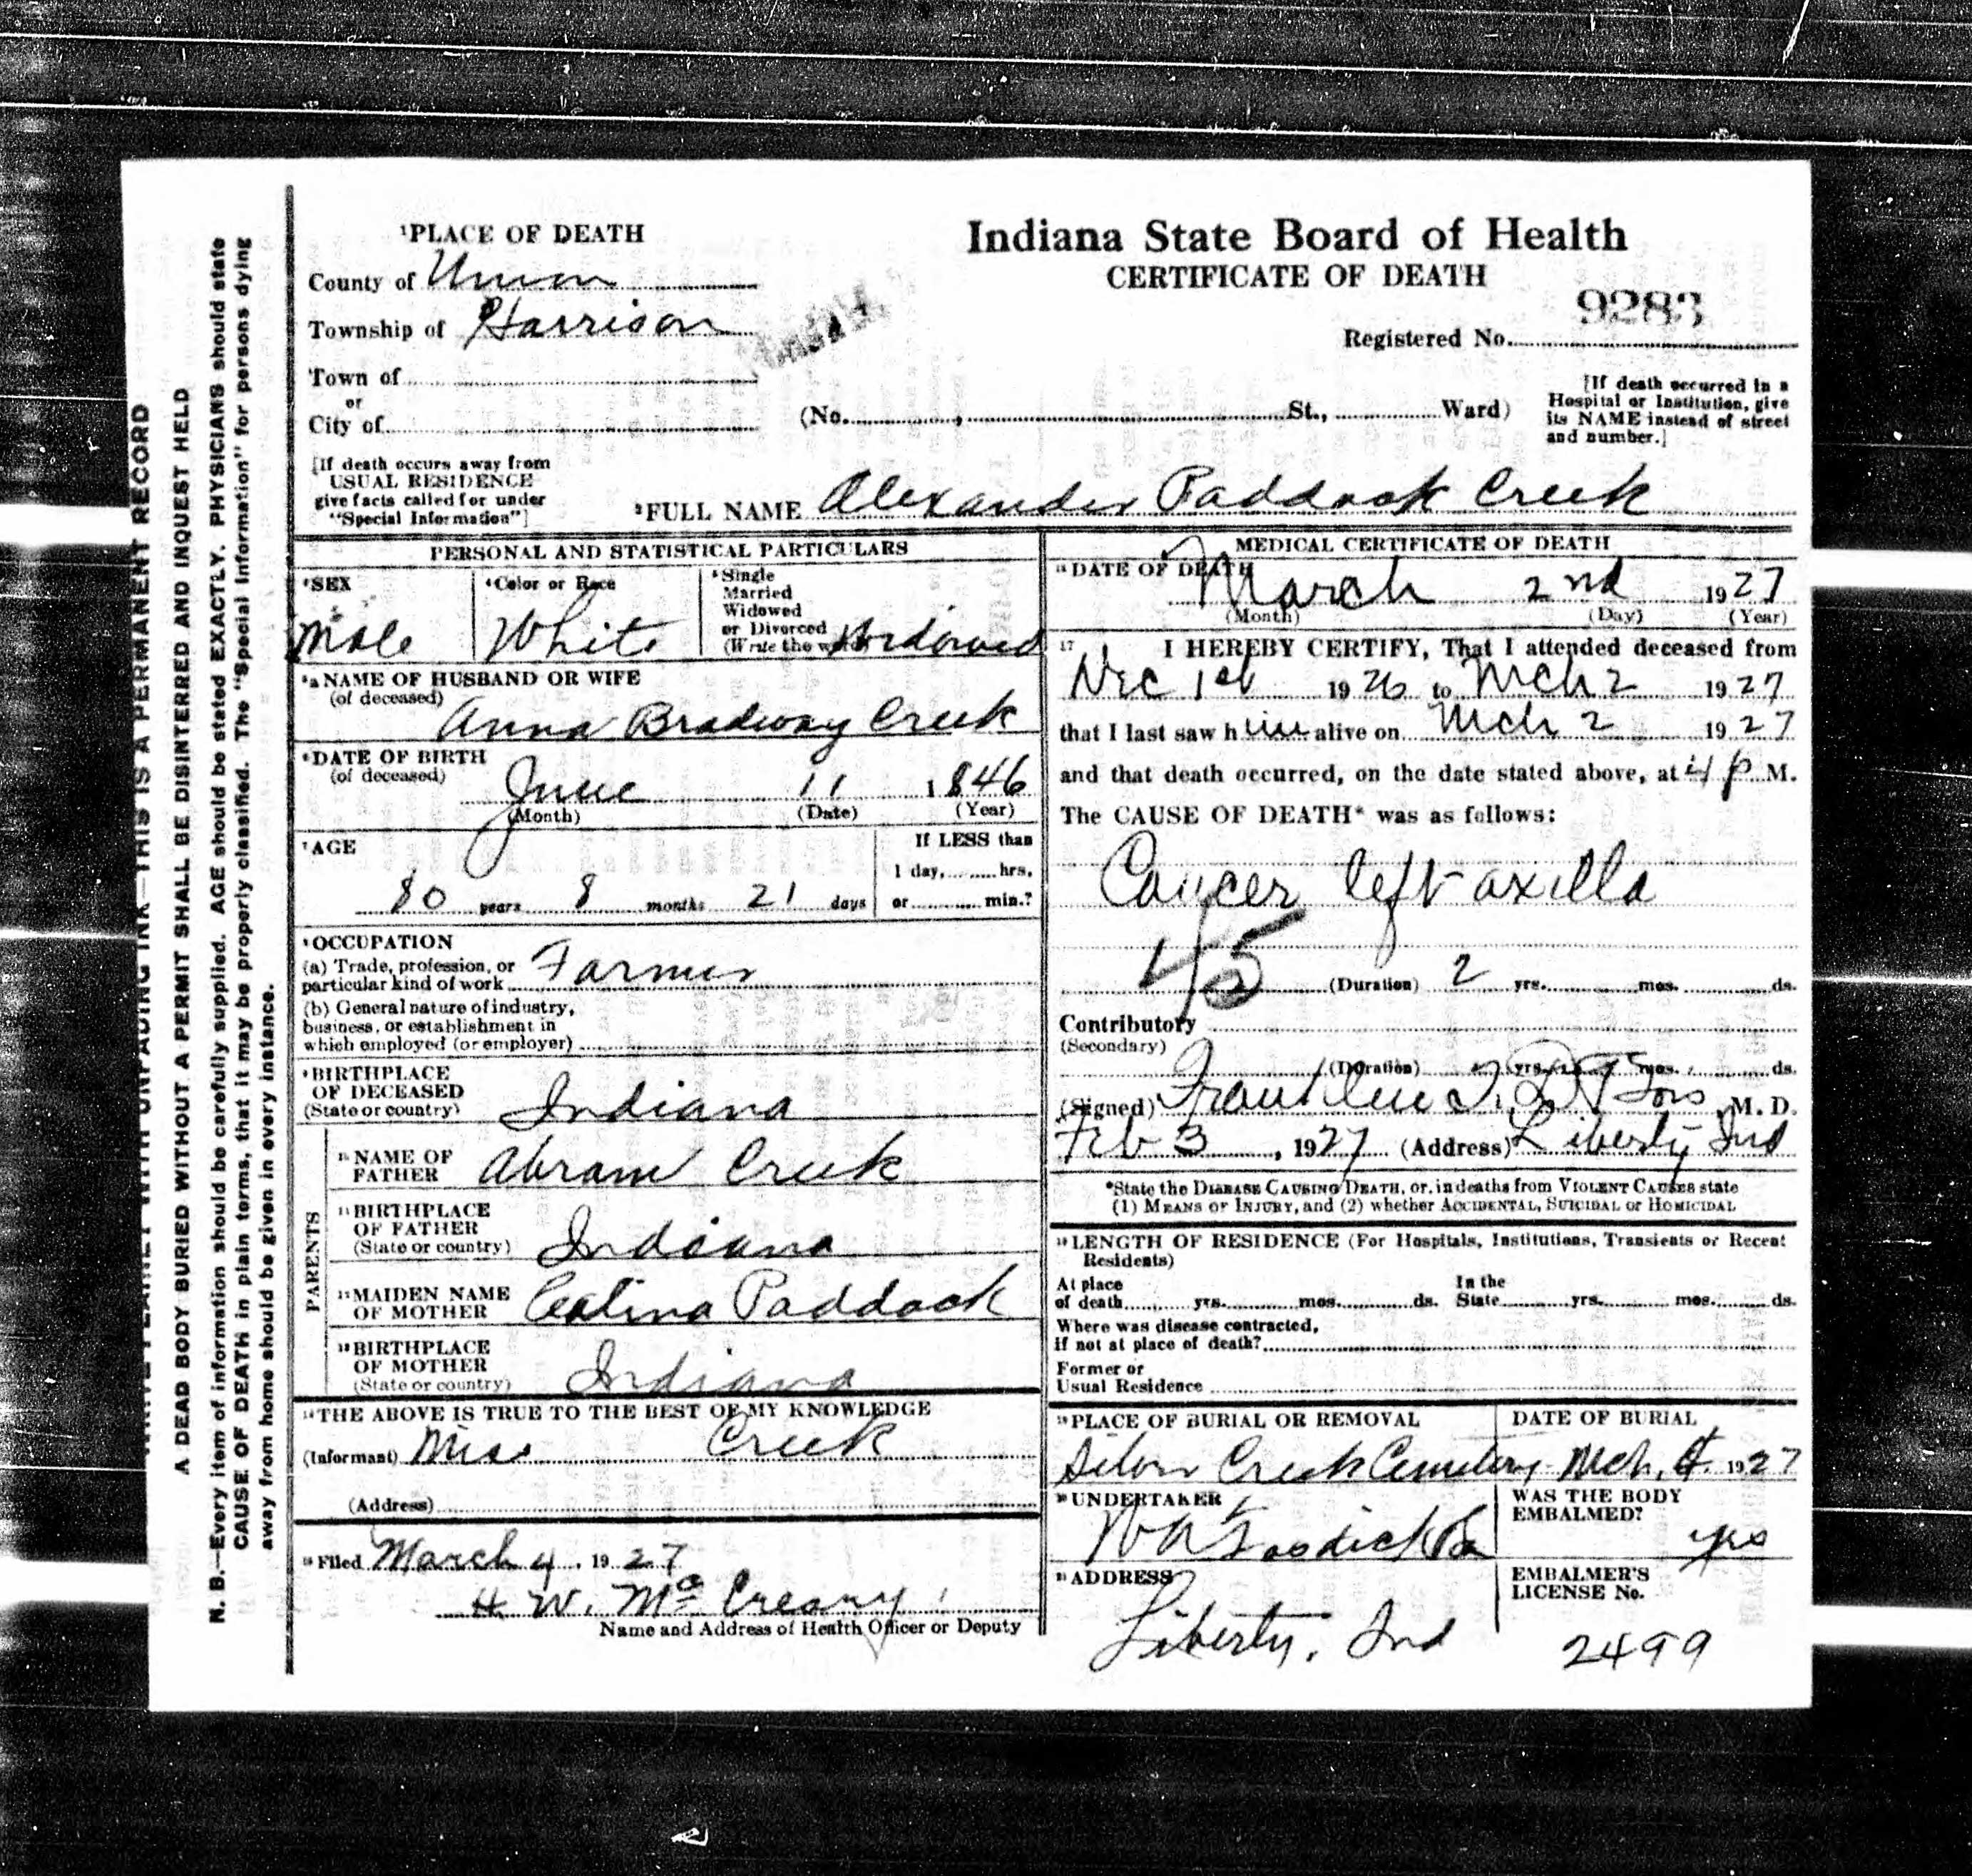 WRITE PLAINLY WITH UNFADING INK—THIS IS A PERMANENT RECORD
A DEAD BODY BURIED WITHOUT A PERMIT SHALL BE DISINTERRED AND INQUEST HELD
N. B.—Every item of information should be carefully supplied. AGE should be stated EXACTLY. PHYSICIANS should state
CAUSE OF DEATH in plain terms, that it may be properly classified. The "Special Information" for persons dying
away from home should be given in every instance.
Indiana State Board of Health
CERTIFICATE OF DEATH
9283
Registered No.
1 PLACE OF DEATH
County of Union
Township of Harrison
Town of
or
City of
(No. , St., Ward)
[If death occurred in a
Hospital or Institution, give
its NAME instead of street
and number.]
[If death occurs away from
USUAL RESIDENCE
give facts called for under
"Special Information"]
2 FULL NAME Alexander Paddock Creek
PERSONAL AND STATISTICAL PARTICULARS
3 SEX
Male
4 Color or Race
White
5 Single
Married
Widowed
or Divorced
(Write the word) Widowed
5a NAME OF HUSBAND OR WIFE
(of deceased)
Anna Bradway Creek
6 DATE OF BIRTH
(of deceased)
June 11 1846
(Month) (Date) (Year)
7 AGE
80 years 8 months 21 days
If LESS than
1 day, hrs,
or min.?
8 OCCUPATION
(a) Trade, profession, or
particular kind of work Farmer
(b) General nature of industry,
business, or establishment in
which employed (or employer)
9 BIRTHPLACE
OF DECEASED
(State or country) Indiana
PARENTS
10 NAME OF
FATHER Abram Creek
11 BIRTHPLACE
OF FATHER
(State or country) Indiana
12 MAIDEN NAME
OF MOTHER Paddock
13 BIRTHPLACE
OF MOTHER
(State or country) Indiana
14 THE ABOVE IS TRUE TO THE BEST OF MY KNOWLEDGE
(Informant) Miss Creek
(Address)
15 Filed March 4, 1927
H. W. McCreary
Name and Address of Health Officer or Deputy
MEDICAL CERTIFICATE OF DEATH
16 DATE OF DEATH
March 2nd 1927
(Month) (Day) (Year)
17 I HEREBY CERTIFY, That I attended deceased from
Dec 1st 1926 to Mch 2 1927
that I last saw him alive on Mch 2 1927
and that death occurred, on the date stated above, at 4 p M.
The CAUSE OF DEATH* was as follows:
Cancer left axilla
45
(Duration) 2 yrs. mos. ds.
Contributory
(Secondary)
(Duration) yrs. mos. ds.
(Signed) Franklin M. D.
Feb 3, 1927 (Address) Liberty Ind
*State the DISEASE CAUSING DEATH, or, in deaths from VIOLENT CAUSES state
(1) MEANS OF INJURY, and (2) whether ACCIDENTAL, SUICIDAL or HOMICIDAL
18 LENGTH OF RESIDENCE (For Hospitals, Institutions, Transients or Recent
Residents)
At place
of death yrs. mos. ds.
In the
State yrs. mos. ds.
Where was disease contracted,
if not at place of death?
Former or
Usual Residence
19 PLACE OF BURIAL OR REMOVAL
Silver Creek Cemetery
DATE OF BURIAL
Mch. 4 1927
20 UNDERTAKER
WAS THE BODY
EMBALMED?
yes
21 ADDRESS
Liberty, Ind
EMBALMER'S
LICENSE No.
2499